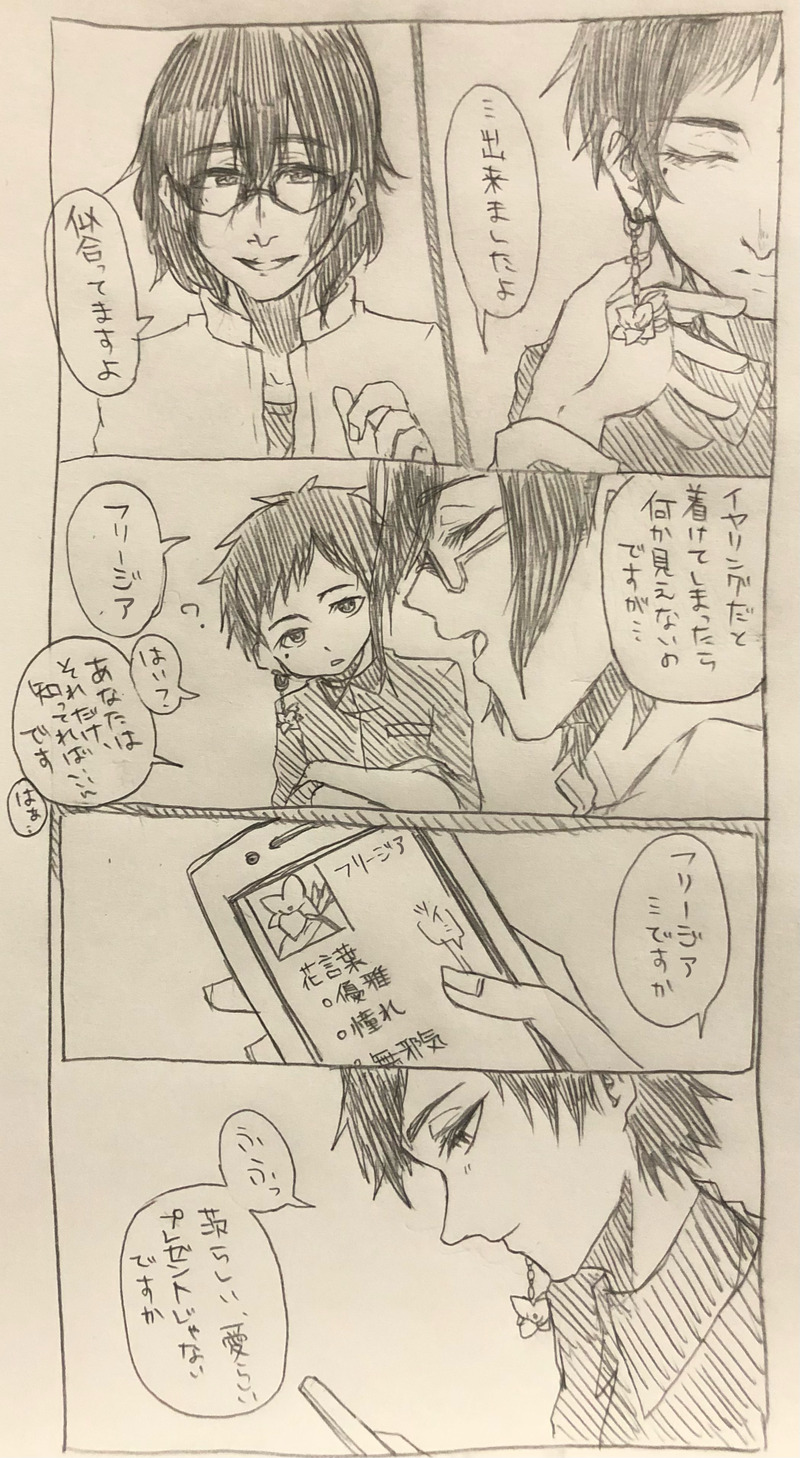 …出来ましたよ
似合ってますよ
イヤリングだと
着けてしまったら
何か見えないの
ですが…
フリージア
はい?
あなたは
それだけ、
知ってれば……
です
はぁ…
フリージア
…ですか
フリージア
花言葉
○優雅
○憧れ
○無邪気
ふふっ
茨らしい、愛らしい
プレゼントじゃない
ですか